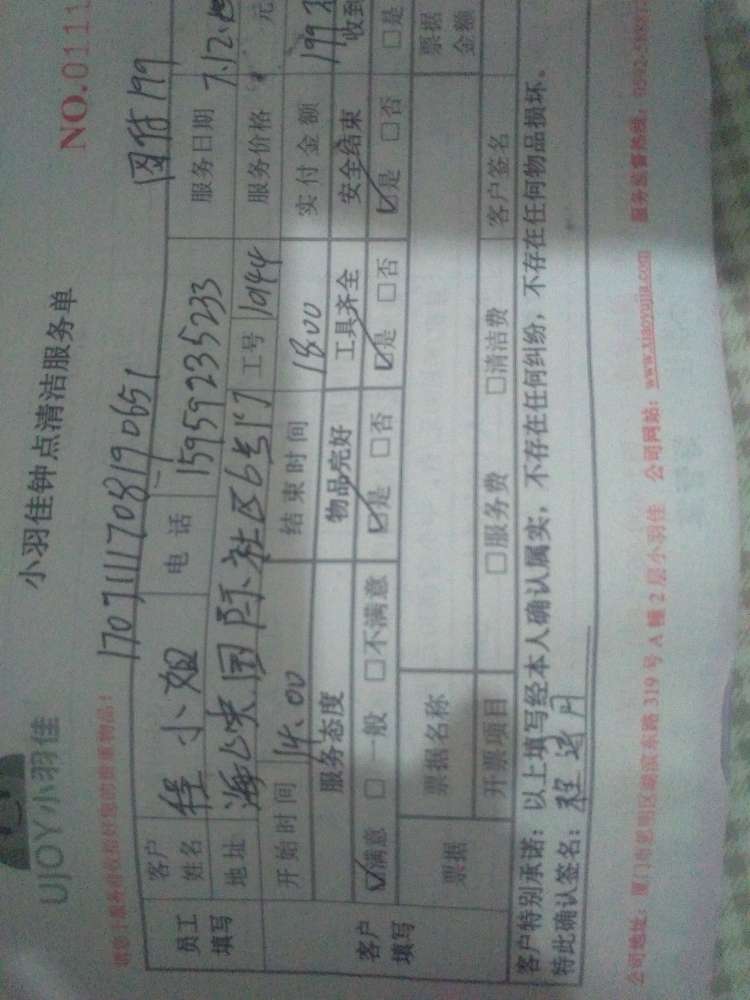 UJOY小羽佳
小羽佳钟点清洁服务单
NO.0111
1707111708190651
网估199
员工填写
客户姓名 程小姐 电话 15959235233 服务日期 7.12.
地址 海峡国际社区6号门 工号 1944 服务价格 元
客户填写
开始时间 14.00 结束时间 1800 实付金额 199
服务态度 物品完好 工具齐全 安全结束 收到
☑满意 □一般 □不满意 ☑是 □否 ☑是 □否 ☑是 □否 □是
票据 票据名称 票据金额
开票项目 □服务费 □清洁费 客户签名
客户特别承诺：以上填写经本人确认属实，不存在任何纠纷，不存在任何物品损坏。
特此确认签名：
公司地址：厦门市思明区湖滨东路 319 号 A 幢 2 层小羽佳 公司网站：www.xiaoyujia.com 服务监督热线：0592-